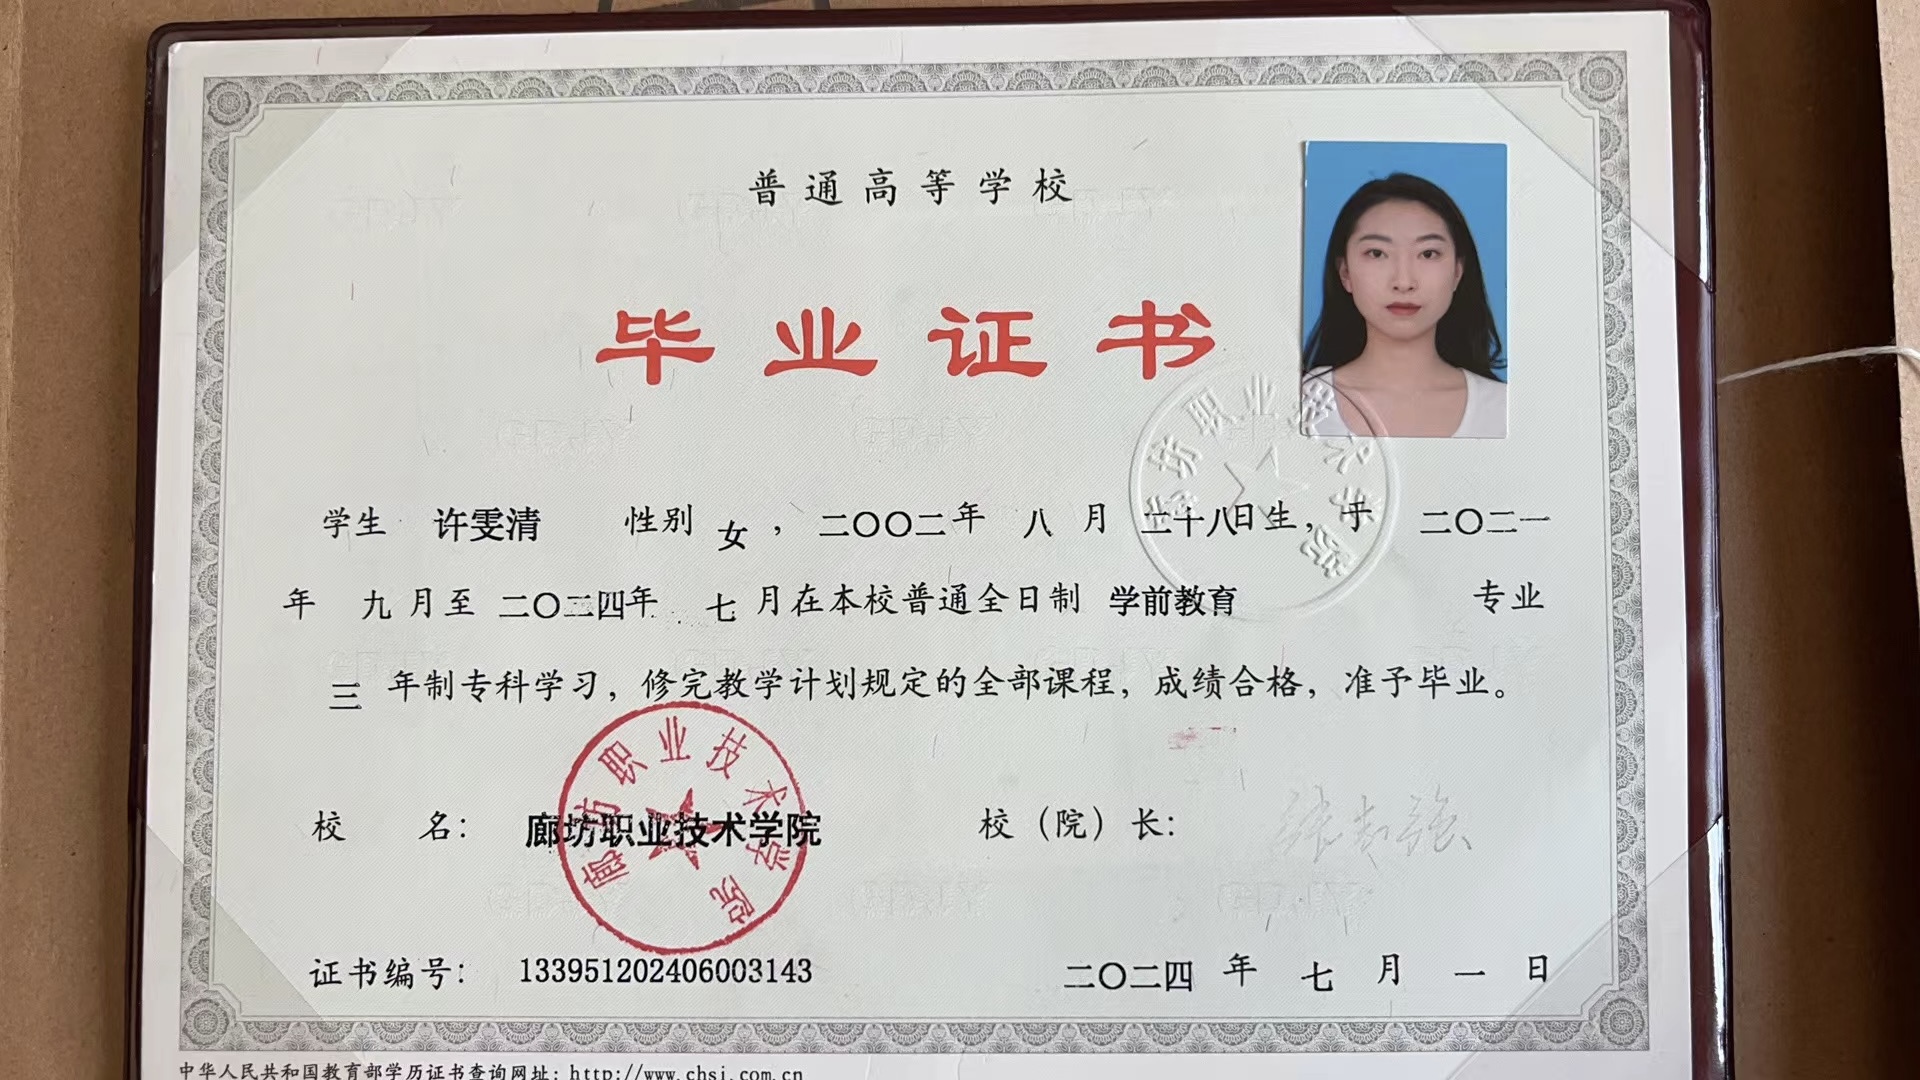 普通高等学校
毕业证书
学生 许雯清 性别 女，二〇〇二年 八 月 二十八日生，于 二〇二一
年 九 月至 二〇二四年 七 月在本校普通全日制 学前教育 专业
三 年制专科学习，修完教学计划规定的全部课程，成绩合格，准予毕业。
校 名： 廊坊职业技术学院
校（院）长： 张志强
廊坊职业技术学院
廊坊职业技术学院
证书编号： 133951202406003143
二〇二四 年 七 月 一 日
中华人民共和国教育部学历证书查询网址：http://www.chsi.com.cn